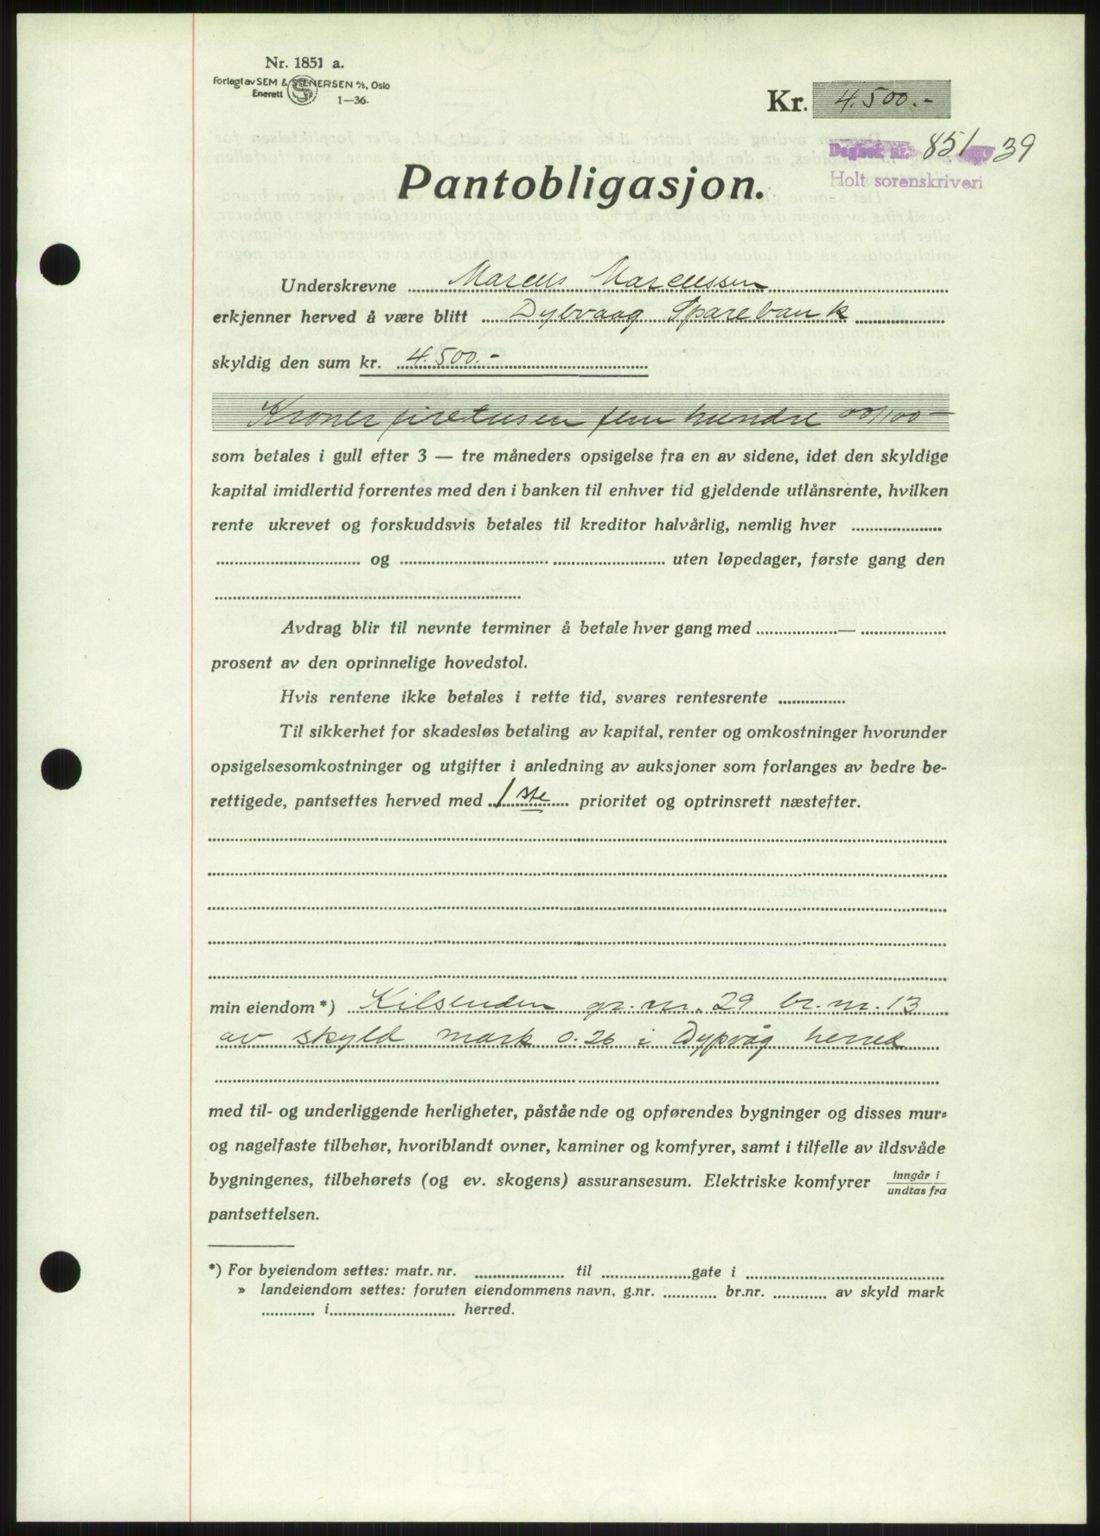 Nr. 1851 a.
Forlagt av SEM & STENERSEN A/S, Oslo
Enerett
1—36.
Kr. 4.500.-
Dagbok nr. 851 39
Holt sorenskriveri
Pantobligasjon.
Underskrevne Marcus Marcussen
erkjenner herved å være blitt Dybvaag Sparebank
skyldig den sum kr. 4.500.-
Kroner firetusen fem hundre 00/100 —
som betales i gull efter 3 — tre måneders opsigelse fra en av sidene, idet den skyldige
kapital imidlertid forrentes med den i banken til enhver tid gjeldende utlånsrente, hvilken
rente ukrevet og forskuddsvis betales til kreditor halvårlig, nemlig hver
og uten løpedager, første gang den
Avdrag blir til nevnte terminer å betale hver gang med —
prosent av den oprinnelige hovedstol.
Hvis rentene ikke betales i rette tid, svares rentesrente
Til sikkerhet for skadesløs betaling av kapital, renter og omkostninger hvorunder
opsigelsesomkostninger og utgifter i anledning av auksjoner som forlanges av bedre be-
rettigede, pantsettes herved med 1ste prioritet og optrinsrett næstefter.
min eiendom *) Kilsenden gr. nr. 29 br. nr. 13
av skyld mark 0.26 i Dypvåg herred
med til- og underliggende herligheter, påstående og opførendes bygninger og disses mur-
og nagelfaste tilbehør, hvoriblandt ovner, kaminer og komfyrer, samt i tilfelle av ildsvåde
bygningenes, tilbehørets (og ev. skogens) assuransesum. Elektriske komfyrer inngår i
undtas fra
pantsettelsen.
*) For byeiendom settes: matr. nr. til gate i
» landeiendom settes: foruten eiendommens navn, g.nr. br.nr. av skyld mark
i herred.